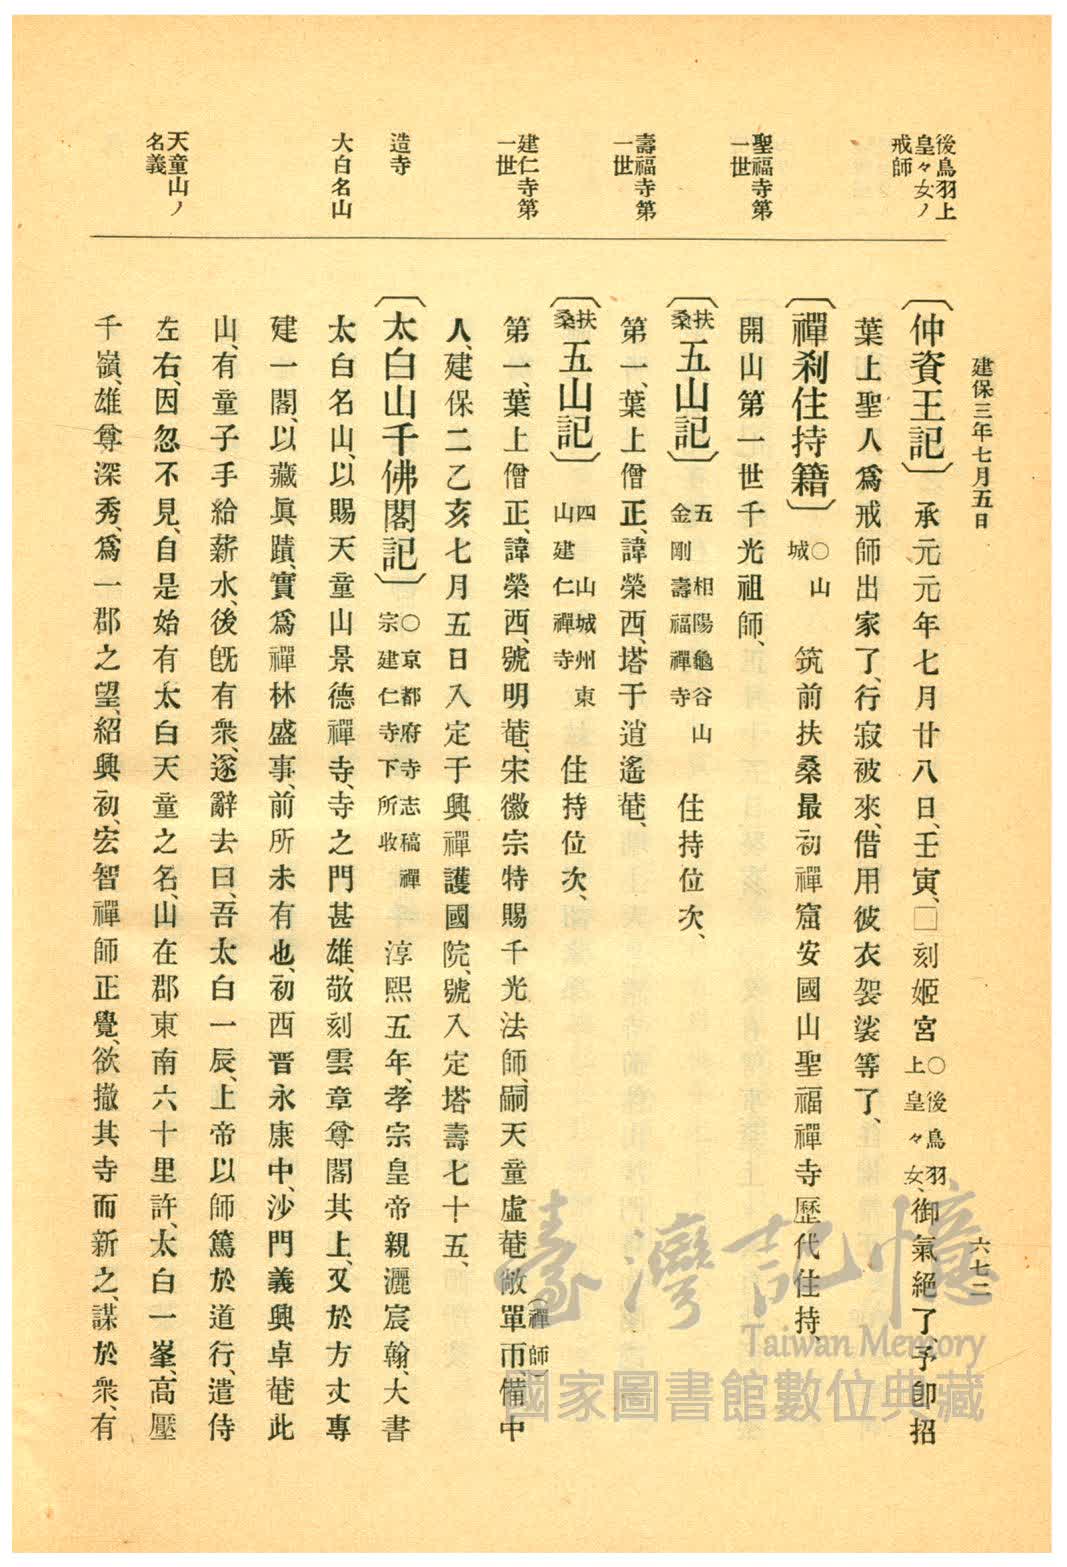 建保三年七月五日
六七二
後鳥羽上
皇々女ノ
戒師
聖福寺第
一世
壽福寺第
一世
建仁寺第
一世
造寺
大白名山
天童山ノ
名義
〔仲資王記〕 承元元年七月廿八日、壬寅、□刻姬宮○後鳥羽上皇々女、御氣絕了予卽招
葉上聖人爲戒師出家了、行寂被來、借用彼衣袈裟等了、
〔禪刹住持籍〕 ○山城 筑前扶桑最初禪窟安國山聖福禪寺歷代住持、
開山第一世千光祖師、
〔扶桑五山記〕 五 相陽龜谷山金剛壽福禪寺 住持位次、
第一、葉上僧正、諱榮西、塔于逍遙菴、
〔扶桑五山記〕 四 山城州東山建仁禪寺 住持位次、
第一、葉上僧正、諱榮西、號明菴、宋徽宗特賜千光法師、嗣天童虛菴敞單而(禪師)、備中
人、建保二乙亥七月五日入定于興禪護國院、號入定塔壽七十五、
〔太白山千佛閣記〕 ○京都府寺志稿禪宗建仁寺下所收 淳熙五年、孝宗皇帝親灑宸翰、大書
太白名山、以賜天童山景德禪寺、寺之門甚雄、敬刻雲章尊閣其上、又於方丈專
建一閣、以藏眞蹟、實爲禪林盛事、前所未有也、初西晋永康中、沙門義興卓菴此
山、有童子手給薪水、後旣有衆、遂辭去曰、吾太白一辰、上帝以師篤於道行、遣侍
左右、因忽不見、自是始有太白天童之名、山在郡東南六十里許、太白一峯、高壓
千嶺、雄尊深秀、爲一郡之望、紹興初、宏智禪師正覺、欲撤其寺而新之、謀於衆、有
臺灣記憶
Taiwan Memory
國家圖書館數位典藏